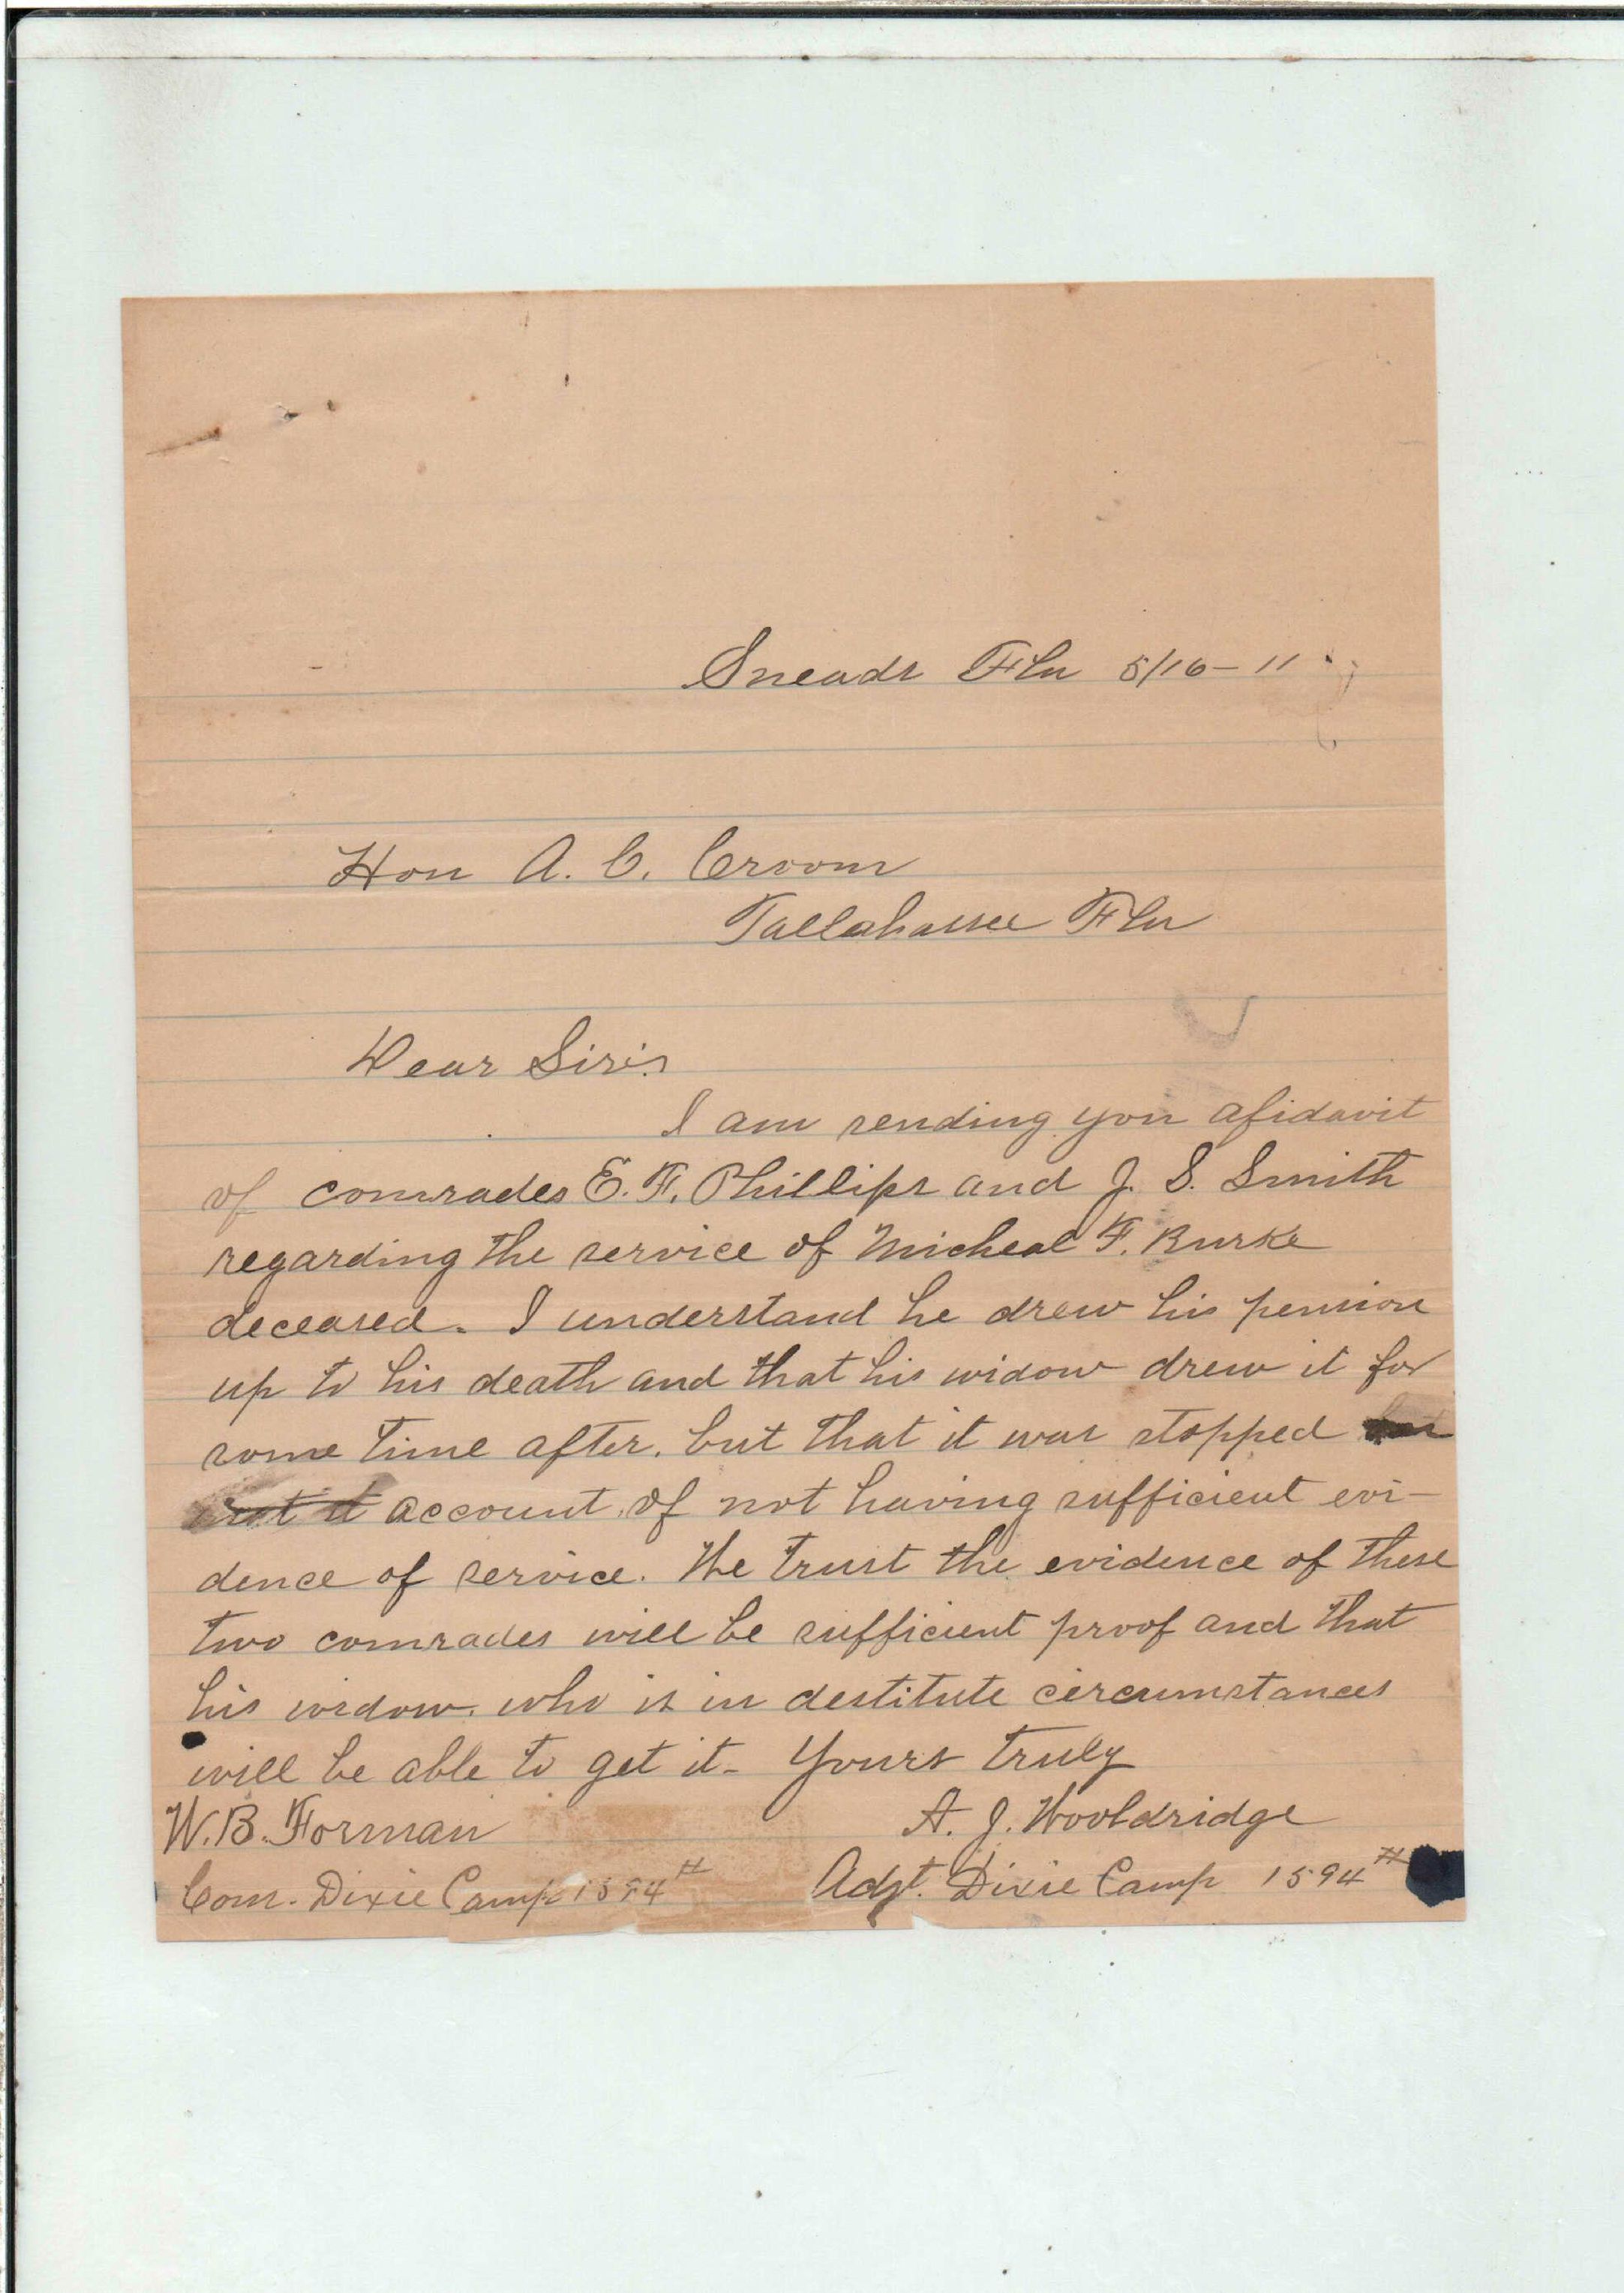 Sneads Fla 5/16-11
Hon A. C. Croom
Tallahassee Fla
Dear Sir:
I am sending you afidavit
of comrades E. F. Phillips and J. S. Smith
regarding the service of Micheal F. Burke
deceased. I understand he drew his pension
up to his death and that his widow drew it for
some time after, but that it was stopped
account of not having sufficient evi-
dence of service. We trust the evidence of these
two comrades will be sufficient proof and that
his widow, who is in destitute circumstances
will be able to get it- Yours truly
W. B. Forman A. J. Wooldridge
Com. Dixie Camp 1594th Adgt. Dixie Camp 1594th